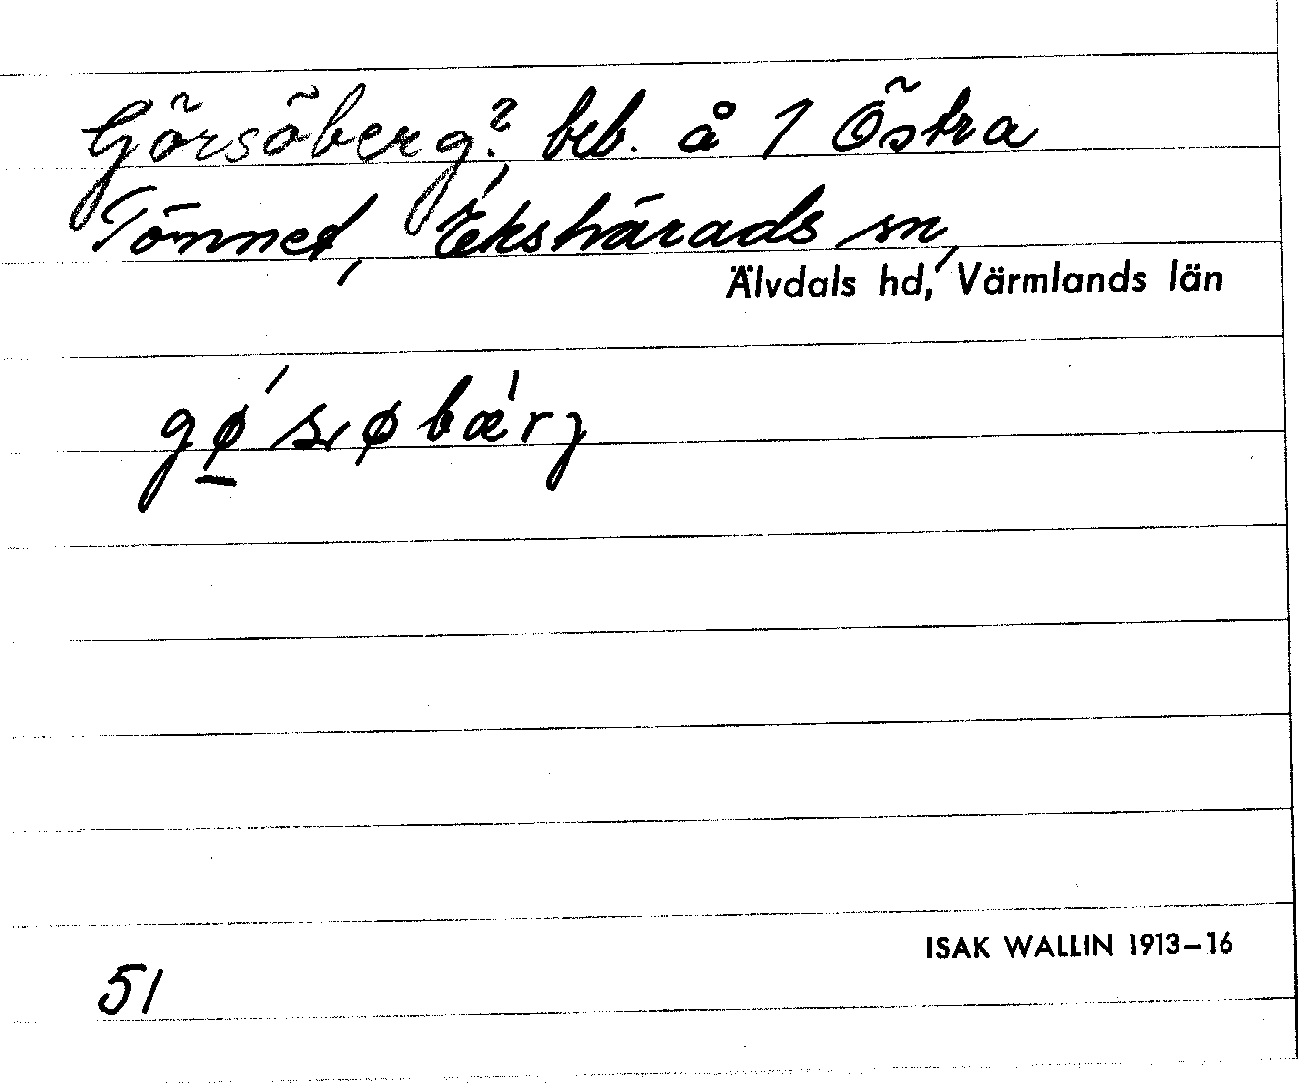 Görsöberg? beb. å 1 Östra
Tönnet, Ekshärads sn,
Älvdals hd, Värmlands län
gø̱´s,øbæ´rȷ
ISAK WALLIN 1913–16
51